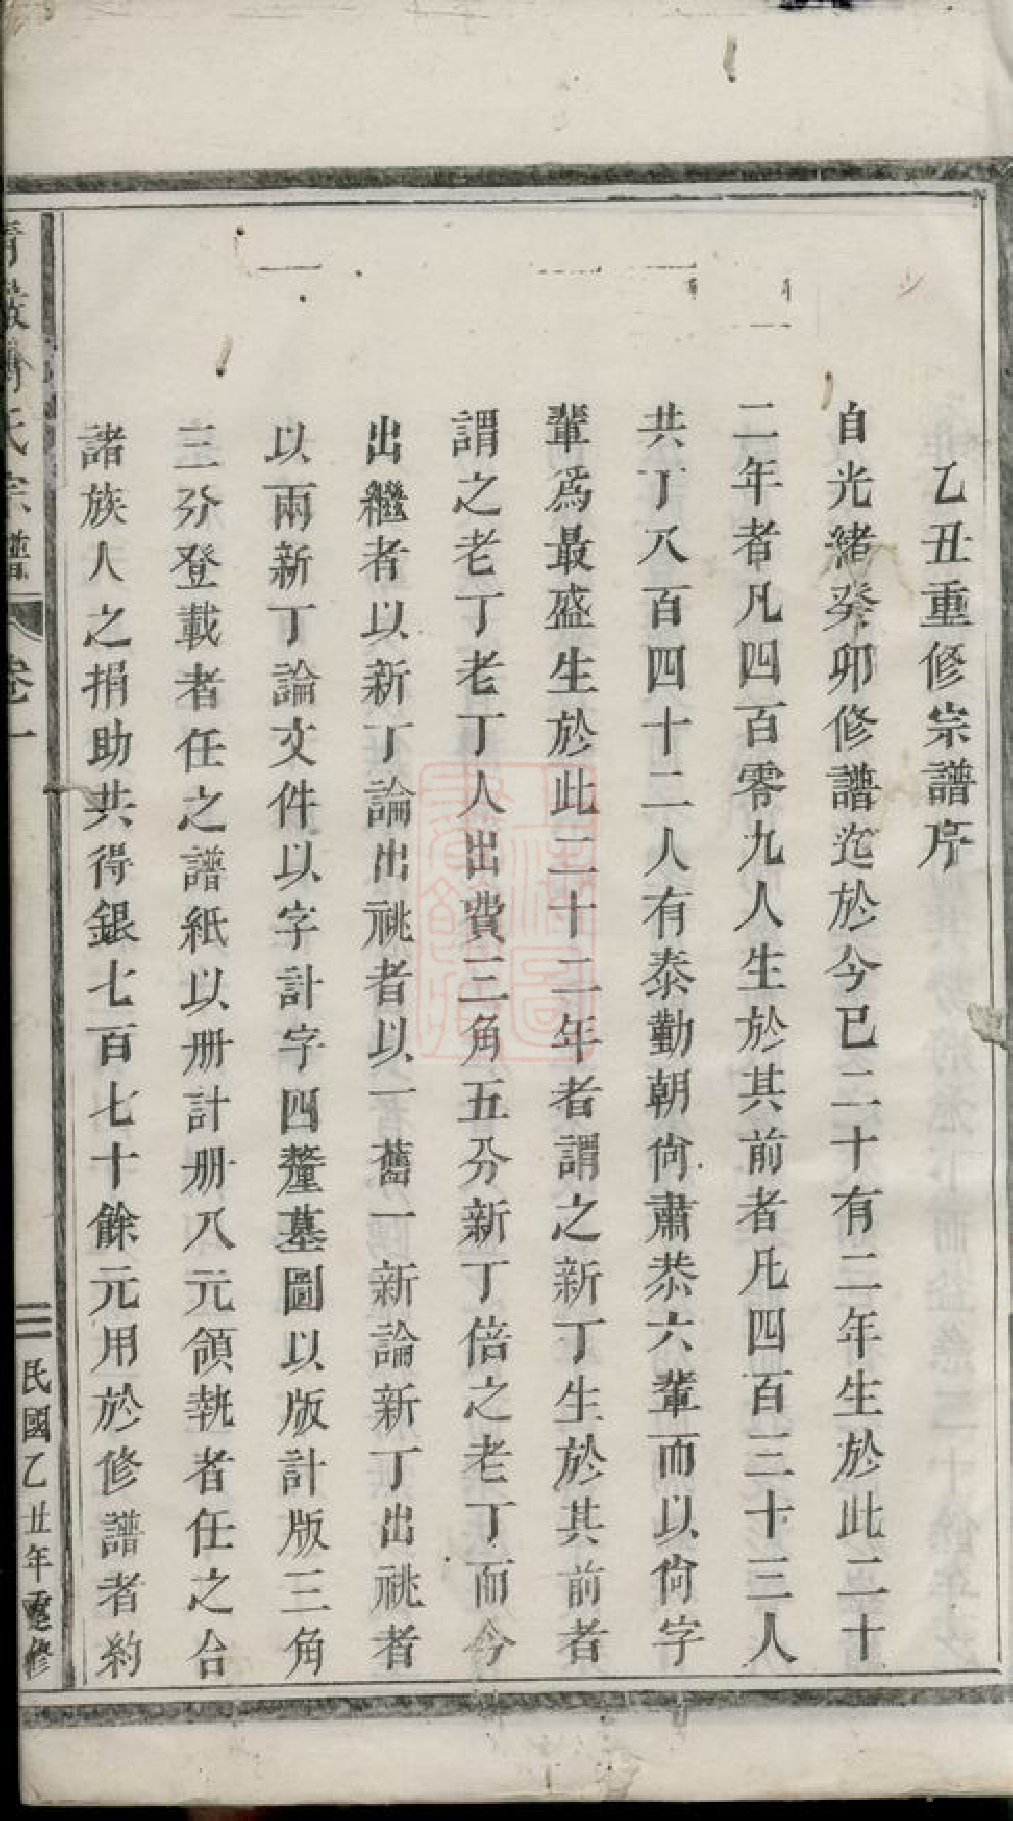 乙丑重修宗譜序
自光緒癸卯修譜迄於今已二十有二年生於此二十
二年者凡四百零九人生於其前者凡四百三十三人
共丁八百四十二人有泰勤朝尙肅恭六輩而以尙字
輩爲最盛生於此二十二年者謂之新丁生於其前者
謂之老丁老丁人出費三角五分新丁倍之老丁而今
出繼者以新丁論出祧者以一舊一新論新丁出祧者
以兩新丁論文件以字計字四釐墓圖以版計版三角
三分登載者任之譜紙以册計册八元領執者任之合
諸族人之捐助共得銀七百七十餘元用於修譜者約
氏宗譜
卷一
二
民國乙丑年重修